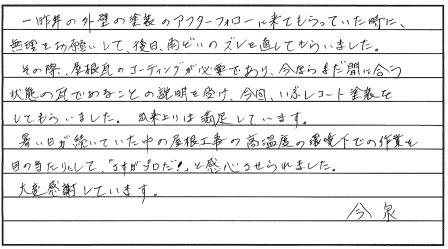 一昨年の外壁の塗装のアフターフォローに来てもらっていた時に、
無理をお願いして、後日、雨どいのズレを直してもらいました。
その際、屋根瓦のコーティングが必要であり、今ならまだ間に合う
状態の瓦であることの説明を受け、今回、いぶしコート塗装を
してもらいました。出来上りは満足しています。
暑い日が続いていた中の屋根工事の高温度の環境下での作業を
目の当たりにして、「さすがプロだ!」と感心させられました。
大変感謝しています。
今泉